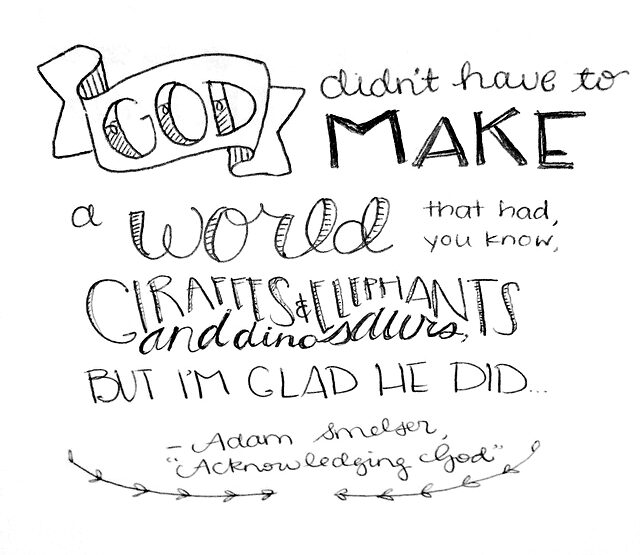 GOD didn't have to
MAKE
a world that had,
you know,
GIRAFFES & ELEPHANTS
and dinosaurs,
BUT I'M GLAD HE DID...
- Adam Smelser,
"Acknowledging God"